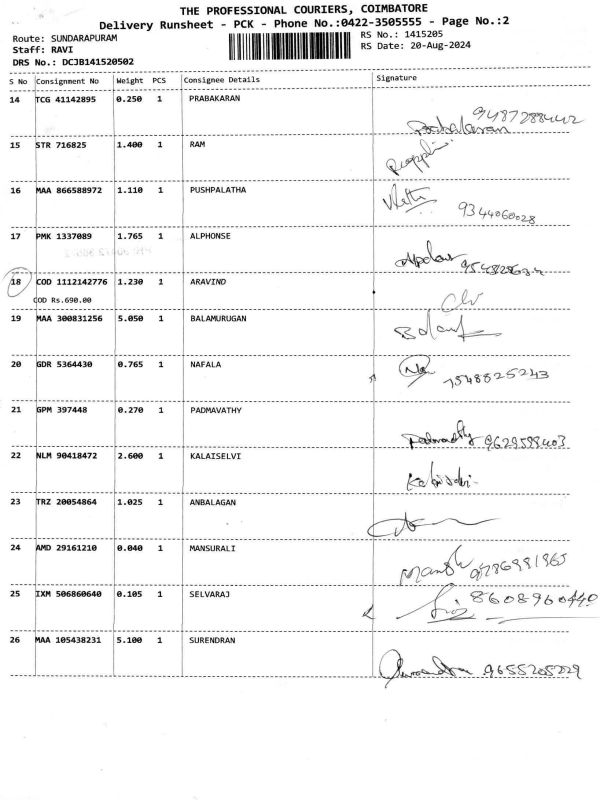 THE PROFESSIONAL COURIERS, COIMBATORE
Delivery Runsheet - PCK - Phone No.:0422-3505555 - Page No.:2
Route: SUNDARAPURAM
Staff: RAVI
DRS No.: DCJB141520502
RS No.: 1415205
RS Date: 20-Aug-2024
S No Consignment No Weight PCS Consignee Details Signature
14 TCG 41142895 0.250 1 PRABAKARAN
Prabakaran 9487288442
15 STR 716825 1.400 1 RAM
16 MAA 866588972 1.110 1 PUSHPALATHA
9344060028
17 PMK 1337089 1.765 1 ALPHONSE
18 COD 1112142776 1.230 1 ARAVIND
COD Rs.690.00
19 MAA 300831256 5.050 1 BALAMURUGAN
20 GDR 5364430 0.765 1 NAFALA
7548825243
21 GPM 397448 0.270 1 PADMAVATHY
Padmavathy 9629598403
22 NLM 90418472 2.600 1 KALAISELVI
23 TRZ 20054864 1.025 1 ANBALAGAN
24 AMD 29161210 0.040 1 MANSURALI
25 IXM 506860640 0.105 1 SELVARAJ
8608960440
26 MAA 105438231 5.100 1 SURENDRAN
Surendran 9655205229